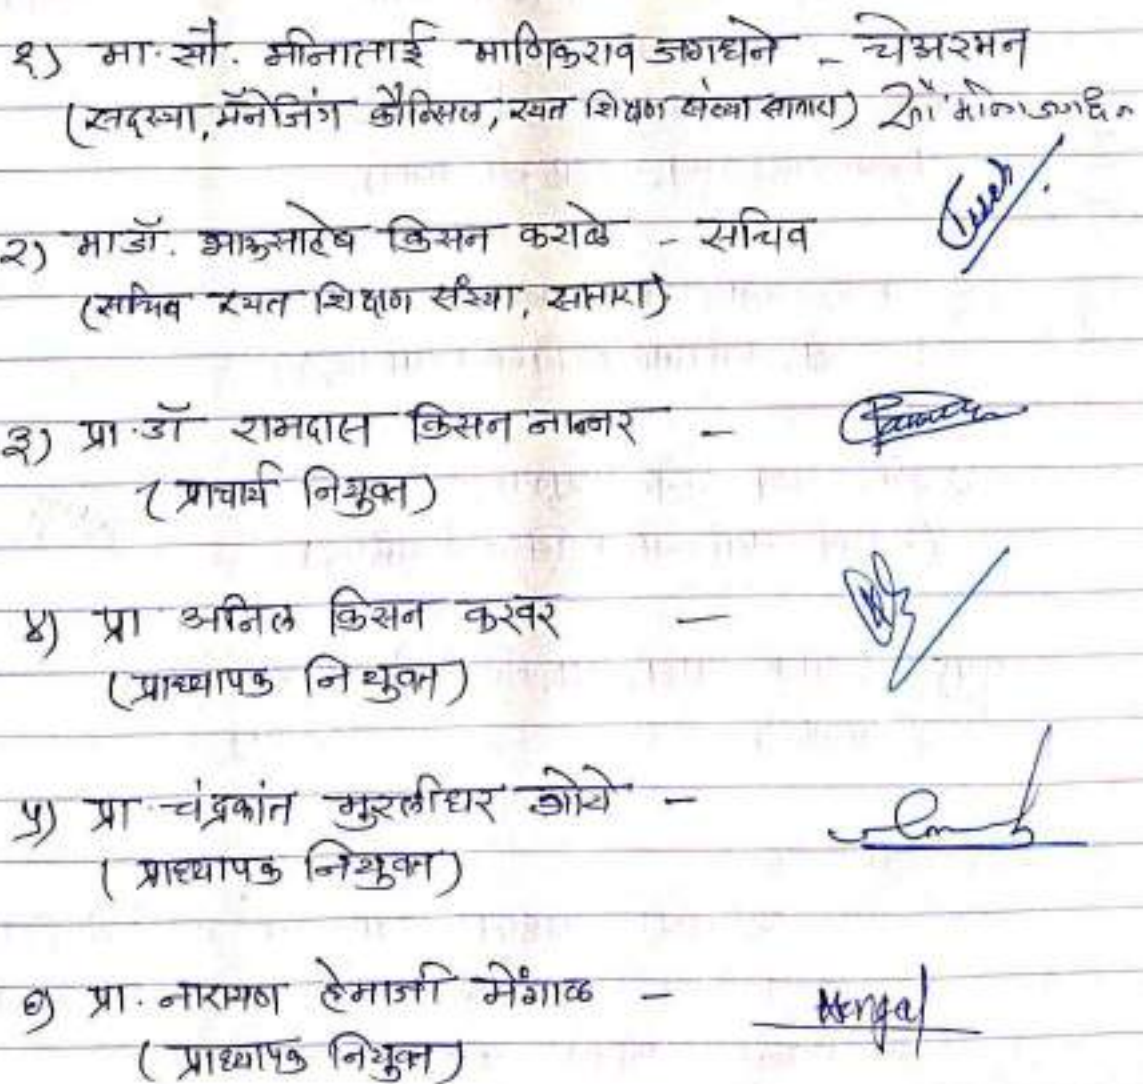 १) मा. सौ. मीनाताई माणिकराव जगधने - चेअरमन
(सदस्या, मॅनेजिंग कौन्सिल, रयत शिक्षण संस्था सातारा) सौ मीना जगधने
२) मा डॉ. भाऊसाहेब किसन कराळे - सचिव
(सचिव रयत शिक्षण संस्था, सातारा)
३) प्रा. डॉ रामदास किसन नान्नर -
(प्राचार्य नियुक्त)
४) प्रा अनिल किसन करवर -
(प्राध्यापक नियुक्त)
५) प्रा. चंद्रकांत मुरलीधर -
(प्राध्यापक नियुक्त)
६) प्रा. नारायण हेमाजी मेंगाळ - Mengal
(प्राध्यापक नियुक्त)